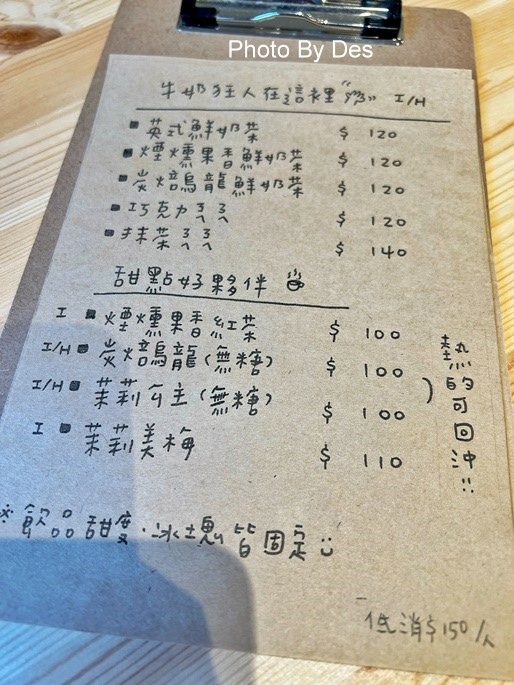 Photo By Des
牛奶狂人在這裡"ㄋㄟ" I/H
■ 英式鮮奶茶 $ 120
■ 煙燻果香鮮奶茶 $ 120
■ 炭焙烏龍鮮奶茶 $ 120
■ 巧克力ㄋㄟㄋㄟ $ 120
■ 抹茶ㄋㄟㄋㄟ $ 140
甜點好夥伴
I ■ 煙燻果香紅茶 $ 100
I/H ■ 炭焙烏龍(無糖) $ 100
I/H ■ 茉莉公主(無糖) $ 100
I ■ 茉莉美梅 $ 110
熱的可回沖!!
※飲品甜度·冰塊皆固定
低消$150/人